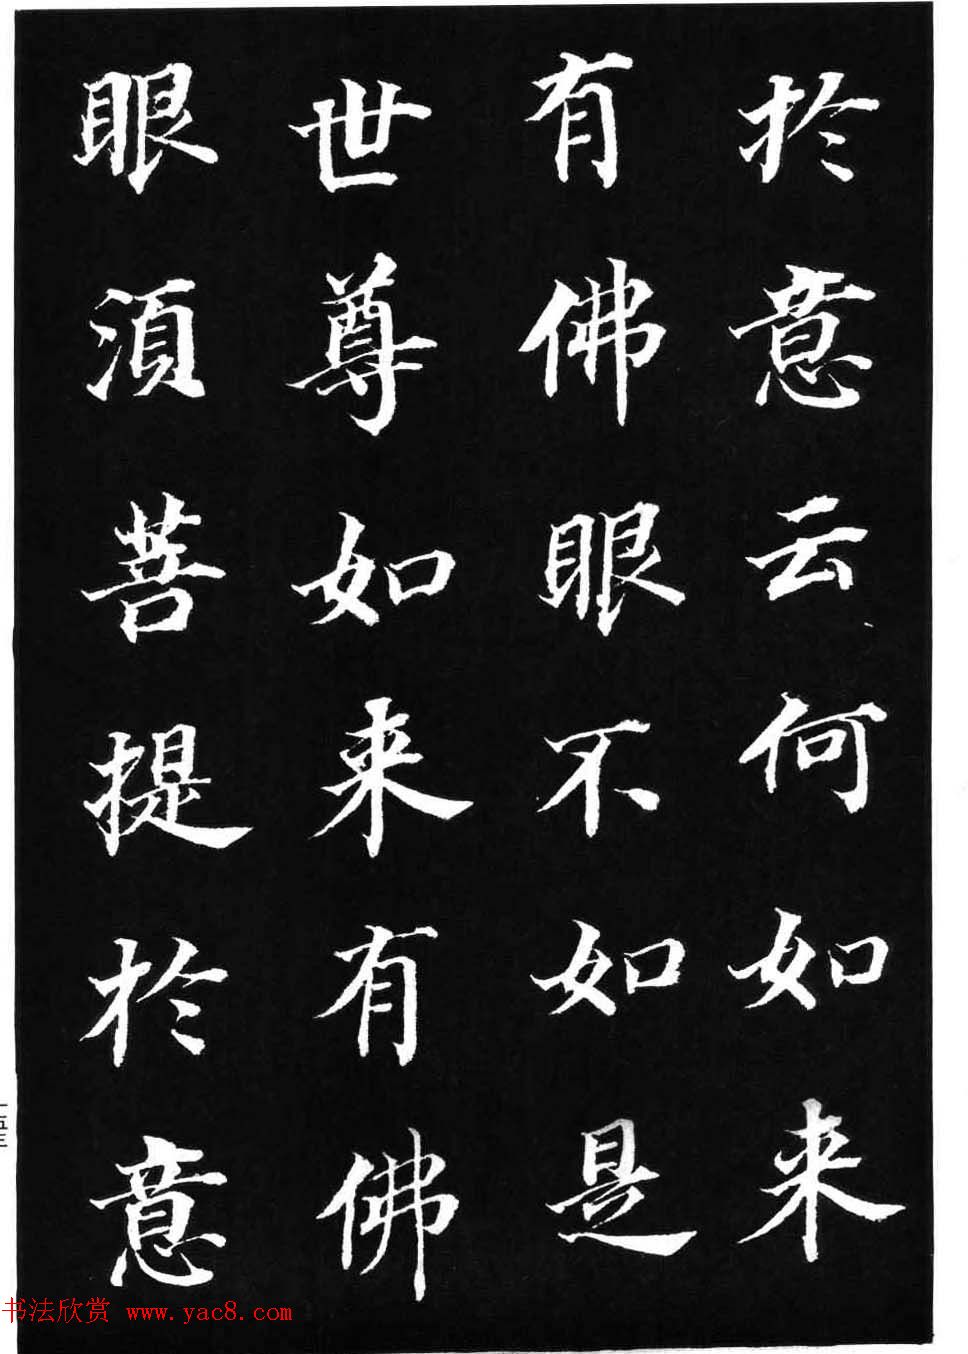 於意云何如来
有佛眼不如是
世尊如来有佛
眼須菩提於意
书法欣赏 www.yac8.com